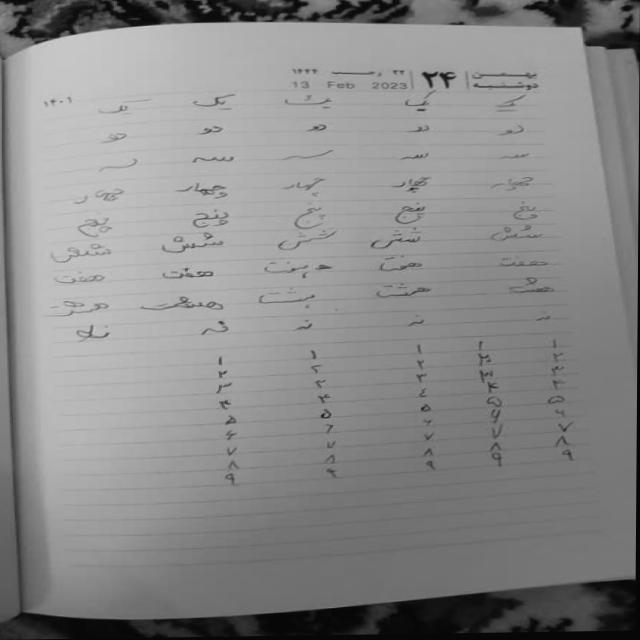 بهمن ۲۴ ۲۲ رجب ۱۴۴۴
دوشنبه 13 Feb 2023
۱۴۰۱
یک یک یک یک یک
دو دو دو دو دو
سه سه سه سه سه
چهار چهار چهار چهار چهار
پنج پنج پنج پنج پنج
شش شش شش شش شش
هفت هفت هفت هفت هفت
هشت هشت هشت هشت
نه نه نه نه نه
۱ ۱ ۱ ۱ ۱
۲ ۲ ۲ ۲ ۲
۳ ۳ ۳ ۳ ۳
۴ ۴ ۴ ۴ ۴
۵ ۵ ۵ ۵ ۵
۶ ۶ ۶ ۶ ۶
۷ ۷ ۷ ۷ ۷
۸ ۸ ۸ ۸ ۸
۹ ۹ ۹ ۹ ۹